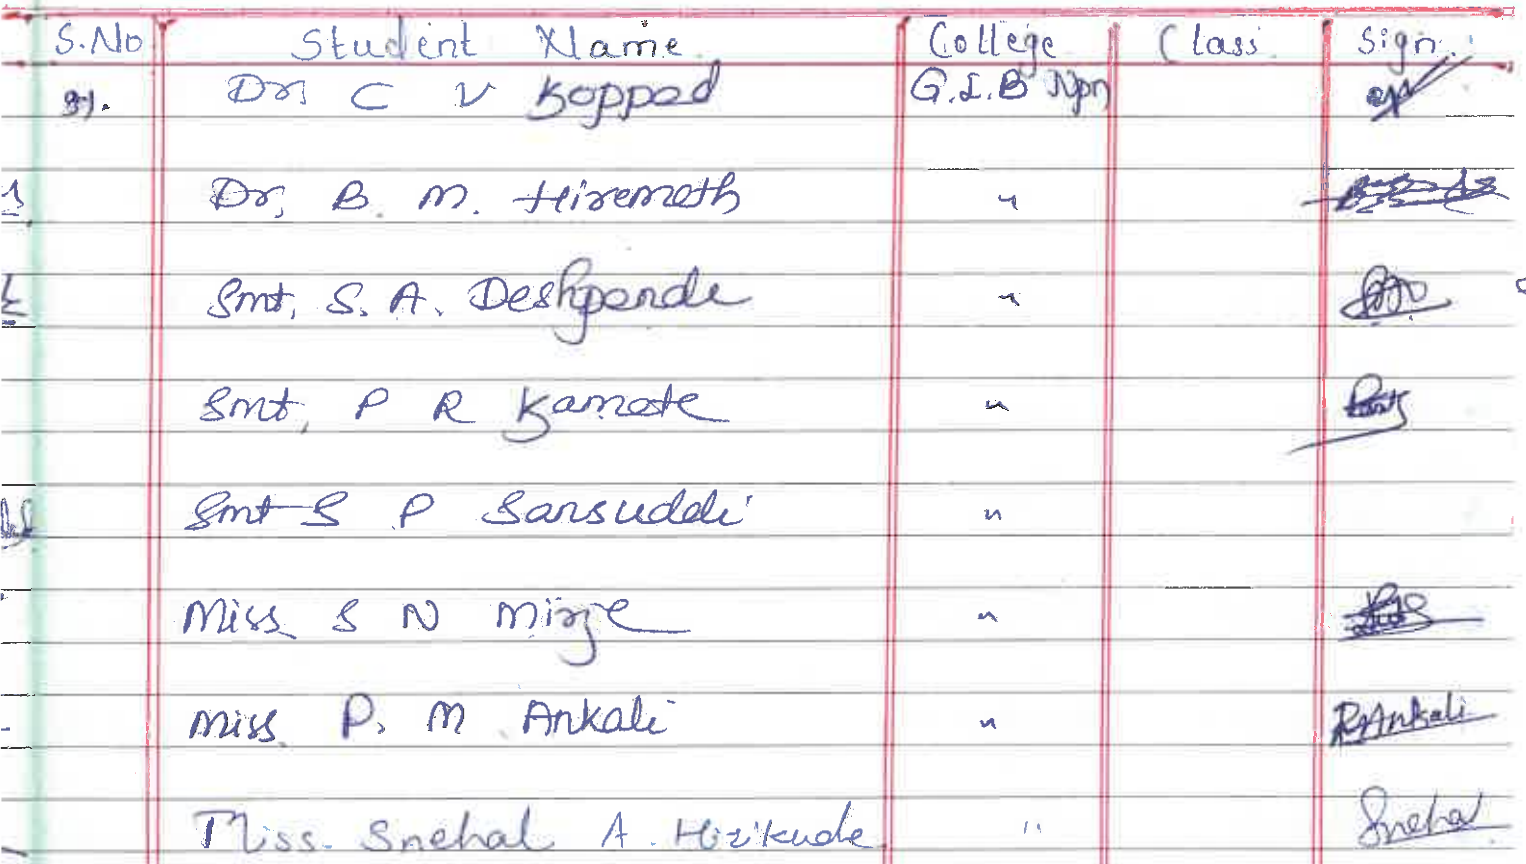 S.No Student Name College Class Sign.
Dr. C V Koppad G.I.B Npn
Dr, B. M. Hiremath "
Smt, S. A. Deshpande "
Smt, P R Kamate "
Smt S P Sansuddi "
Miss S N Mirje "
Miss P. M Ankali " P.Ankali
Miss. Snehal A. Hirikude " Snehal